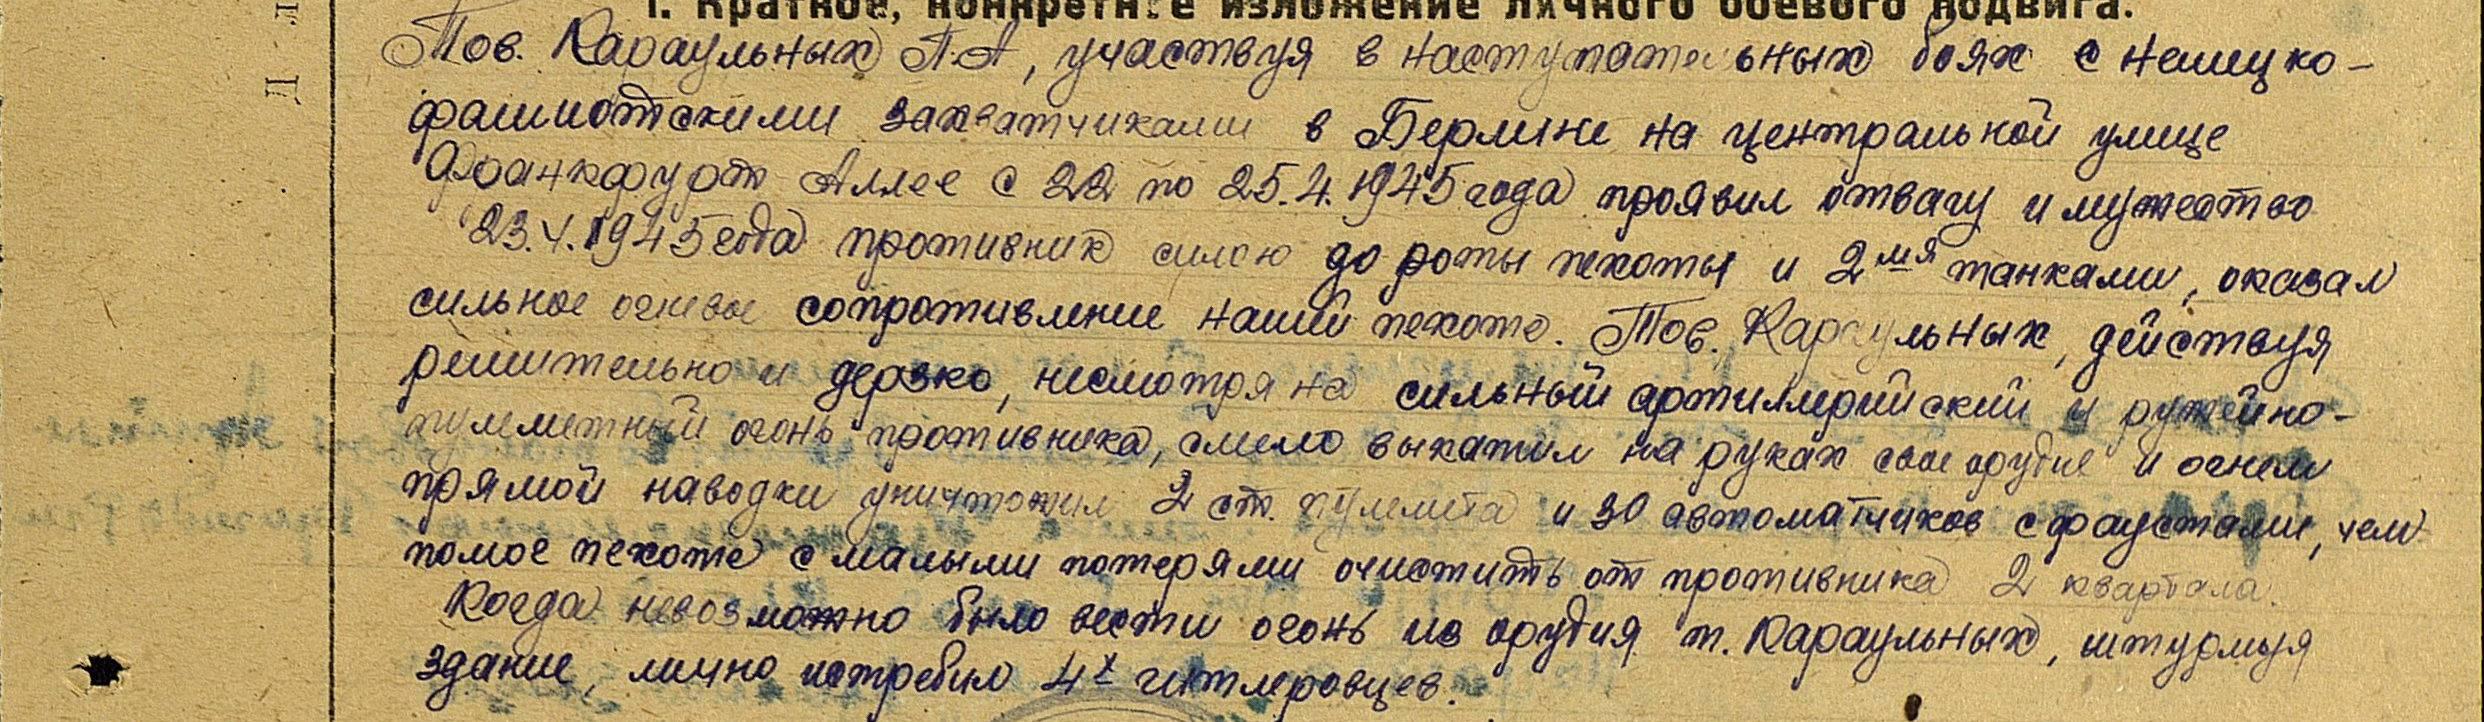 1. Краткое, конкретное изложение личного боевого подвига.
Тов. Караульных П.А, участвуя в наступательных боях с немецко-
фашистскими захватчиками в Берлине на центральной улице
Франкфурт Аллее с 22 по 25.4.1945 года проявил отвагу и мужество
23.4.1945 года противник силою до роты пехоты и 2мя танками, оказал
сильное огневое сопротивление нашей пехоте. Тов. Караульных, действуя
решительно и дерзко, несмотря на сильный артиллерийский и ружейно-
пулеметный огонь противника, смело выкатил на руках свое орудие и огнем
прямой наводки уничтожил 2 ст. пулемета и 30 автоматчиков с фаустами, чем
помог пехоте с малыми потерями очистить от противника 2 квартала.
Когда невозможно было вести огонь из орудия т. Караульных, штурмуя
здание, лично истребил 4х гитлеровцев.